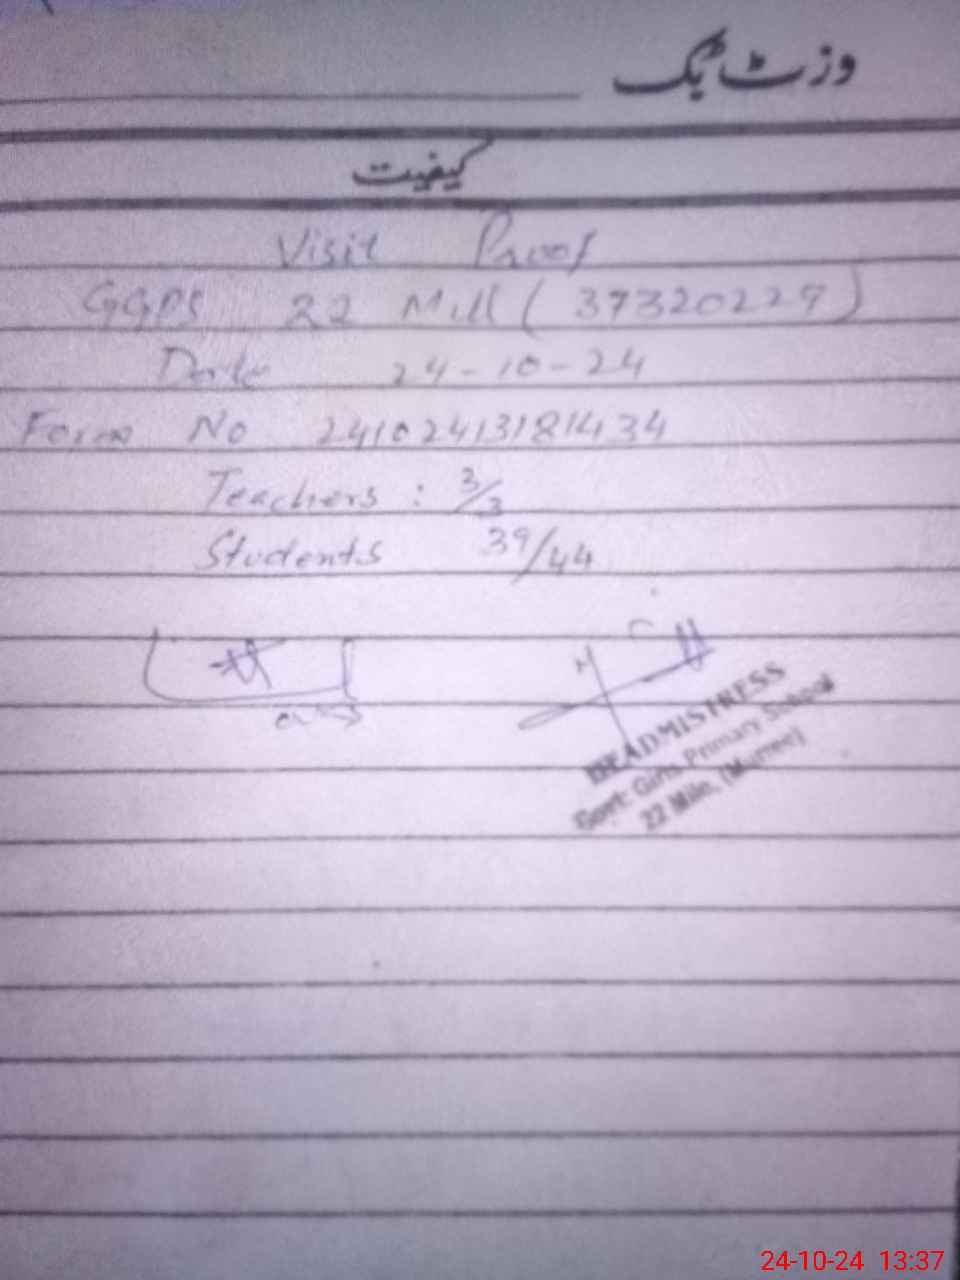 وزٹ بک
کیفیت
Visit Proof
GGPS 22 Mill ( 37320229 )
Date 24-10-24
Form No 24102413181434
Teachers : 3/3
Students 39/44
HEADMISTRESS
Govt: Girls Primary School
22 Mile, (Murree)
24-10-24 13:37